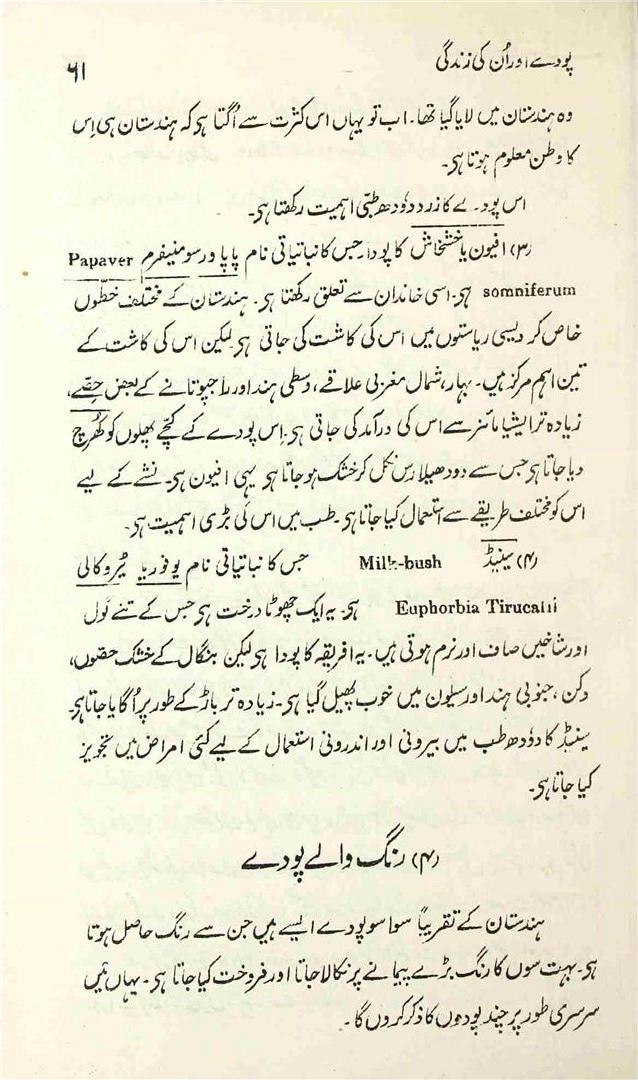 پودے اور اُن کی زندگی ۶۱
وہ ہندستان میں لایا گیا تھا۔ اب تو یہاں اس کثرت سے اُگتا ہو کہ ہندستان ہی اِس
کا وطن معلوم ہوتا ہو۔
اس پودے کا زرد دوٗدھ طبّی اہمیت رکھتا ہو۔
(۳) افیون یا خشخاش کا پودا۔ جس کا نباتیاتی نام پاپا ورسومنیفرم Papaver
somniferum ہو۔ اسی خاندان سے تعلق رکھتا ہو۔ ہندستان کے مختلف خطّوں
خاص کر دیسی ریاستوں میں اس کی کاشت کی جاتی ہو لیکن اس کی کاشت کے
تین اہم مرکز ہیں۔ بہار، شمال مغربی علاقے، وسطی ہند اور راجپوتانے کے بعض حصّے،
زیادہ تر ایشیا مائنر سے اس کی درآمد کی جاتی ہو۔ اِس پودے کے کچّے پھلوں کو کُھرچ
دیا جاتا ہو جس سے دودھیلا رس نکل کر خشک ہو جاتا ہو یہی افیون ہو۔ نشے کے لیے
اس کو مختلف طریقے سے استعمال کیا جاتا ہو۔ طب میں اس کی بڑی اہمیت ہو۔
(۴) سینڈ Milk-bush جس کا نباتیاتی نام یوفوربیا ٹیروکالی
Euphorbia Tirucalli ہو۔ یہ ایک چھوٹا درخت ہو جس کے تنے گول
اور شاخیں صاف اور نرم ہوتی ہیں۔ یہ افریقہ کا پودا ہو لیکن بنگال کے خشک حصّوں،
دکن، جنوبی ہند اور سیلون میں خوب پھیل گیا ہو۔ زیادہ تر باڑ کے طور پر اُگایا جاتا ہو۔
سینڈ کا دوٗدھ طب میں بیرونی اور اندرونی استعمال کے لیے کئی امراض میں تجویز
کیا جاتا ہو۔
(۴) رنگ والے پودے
ہندستان کے تقریباً سوا سو پودے ایسے ہیں جن سے رنگ حاصل ہوتا
ہو۔ بہت سوں کا رنگ بڑے پیمانے پر نکالا جاتا اور فروخت کیا جاتا ہو۔ یہاں میں
سرسری طور پر چند پودوں کا ذکر کردوں گا۔